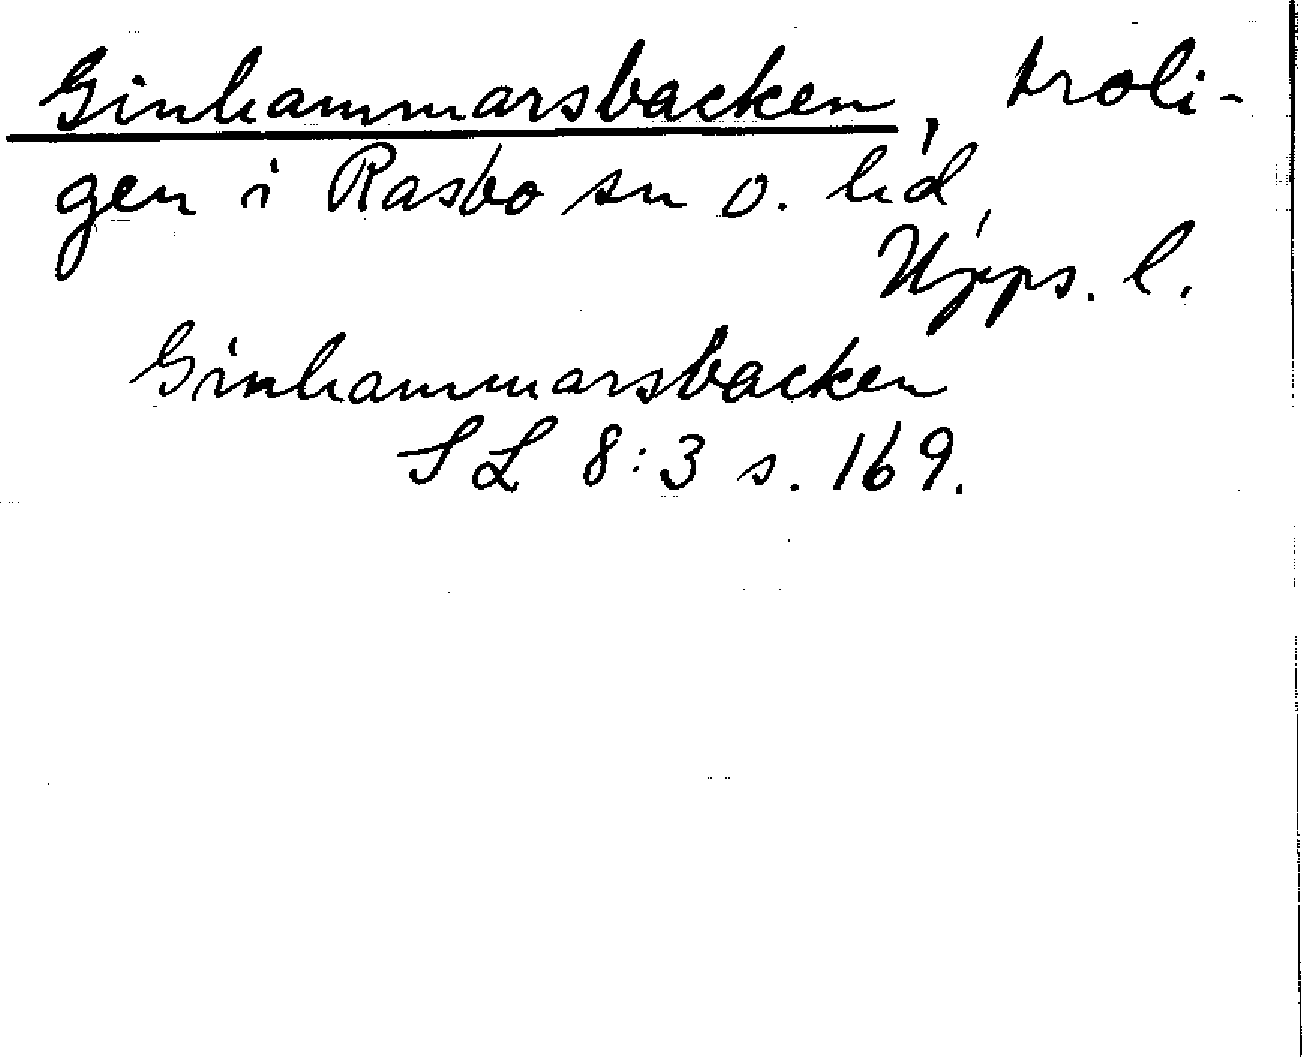 Ginhammarsbacken, troli-
gen i Rasbo sn o. hd,
Upps. l.
Ginhammarsbacken
SL 8:3 s. 169.